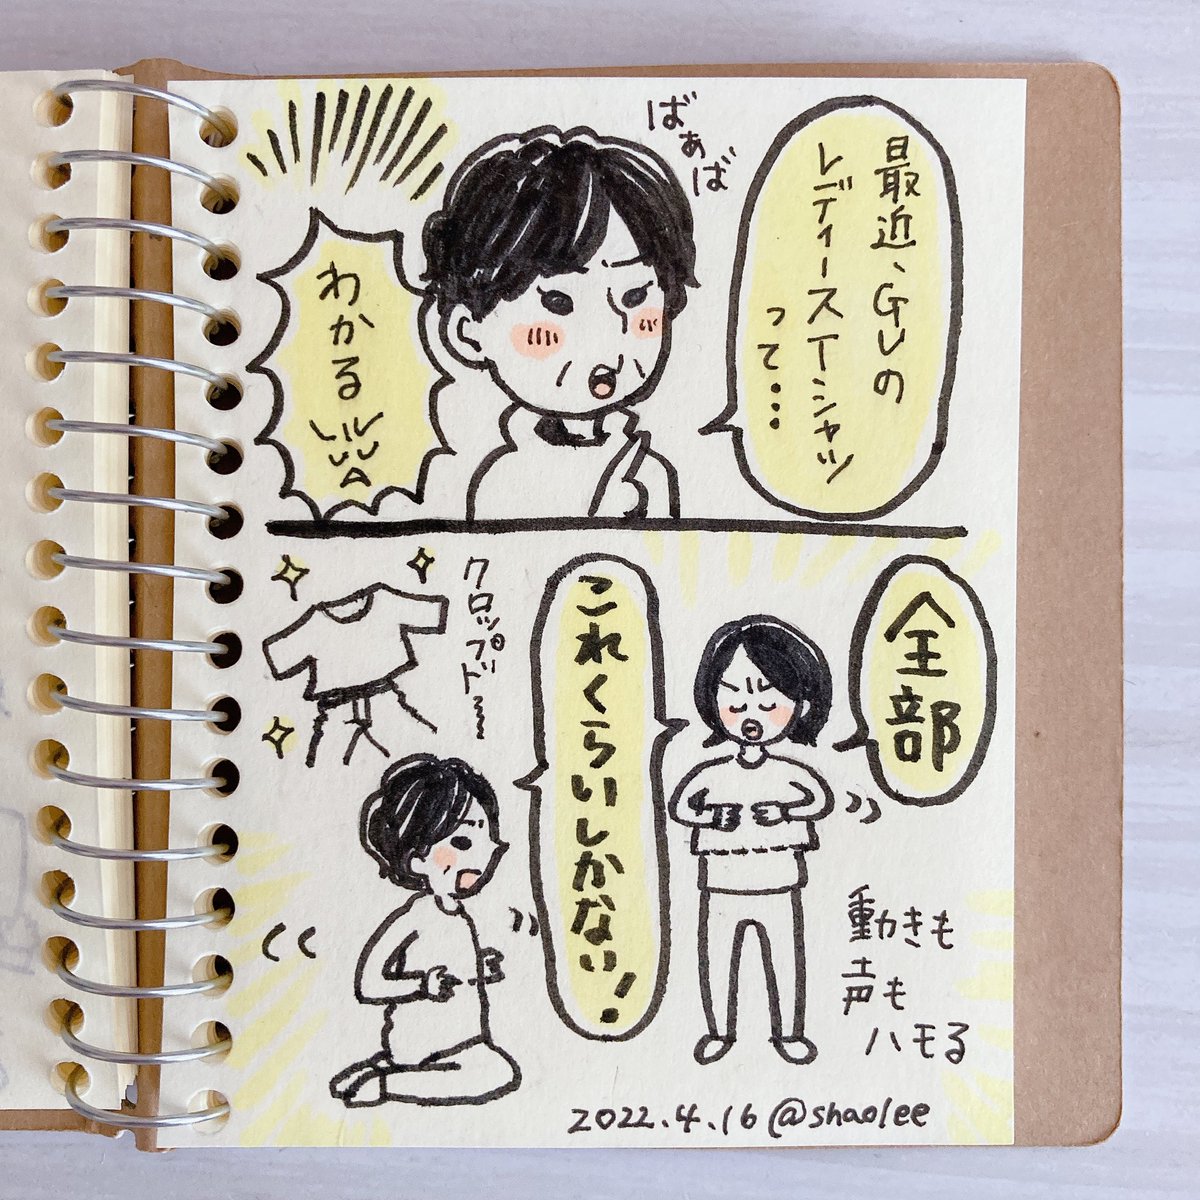 ばぁば
最近、GUの
レディースTシャツ
って...
わかる
全部
これくらいしかない!
クロップド〜
動きも
声も
ハモる
2022.4.16 @shaolee